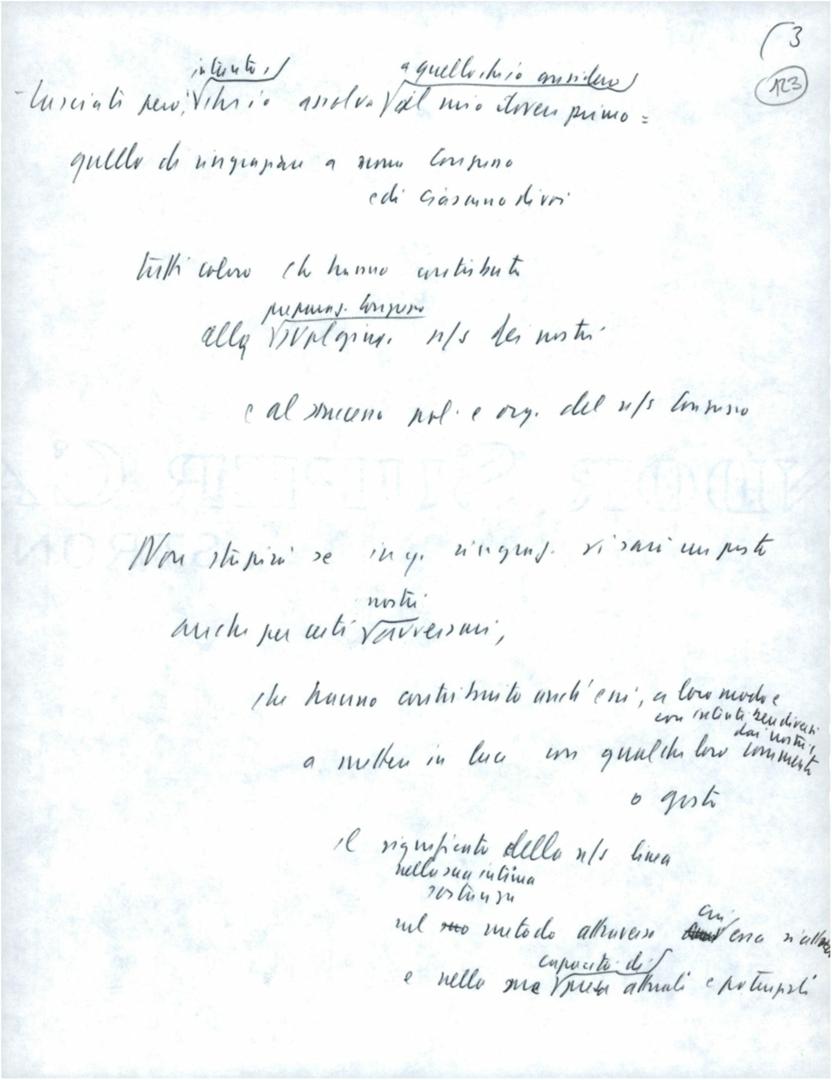 (3
123
intanto
a quello che io considero
- Lasciate però, ch'io assolva al mio dovere primo =
quello di ringraziare a nome Congresso
e di ciascuno di voi
tutti coloro che hanno contribuito
preparaz. Congresso
alla n/s dei nostri
e al successo pol. e org. del n/s Congresso
Non stupirà se in q. ringraz. vi sarà un posto
nostri
anche per certi avversari,
che hanno contribuito anch'essi, a loro modo e
con intenti ben diversi
dai nostri,
a mettere in luce con qualche loro commento
o gesto
il significato della n/s linea
nella sua intima
sostanza
nel suo metodo attraverso cui essa si
capacità di
e nella sua presa attuali e potenziali